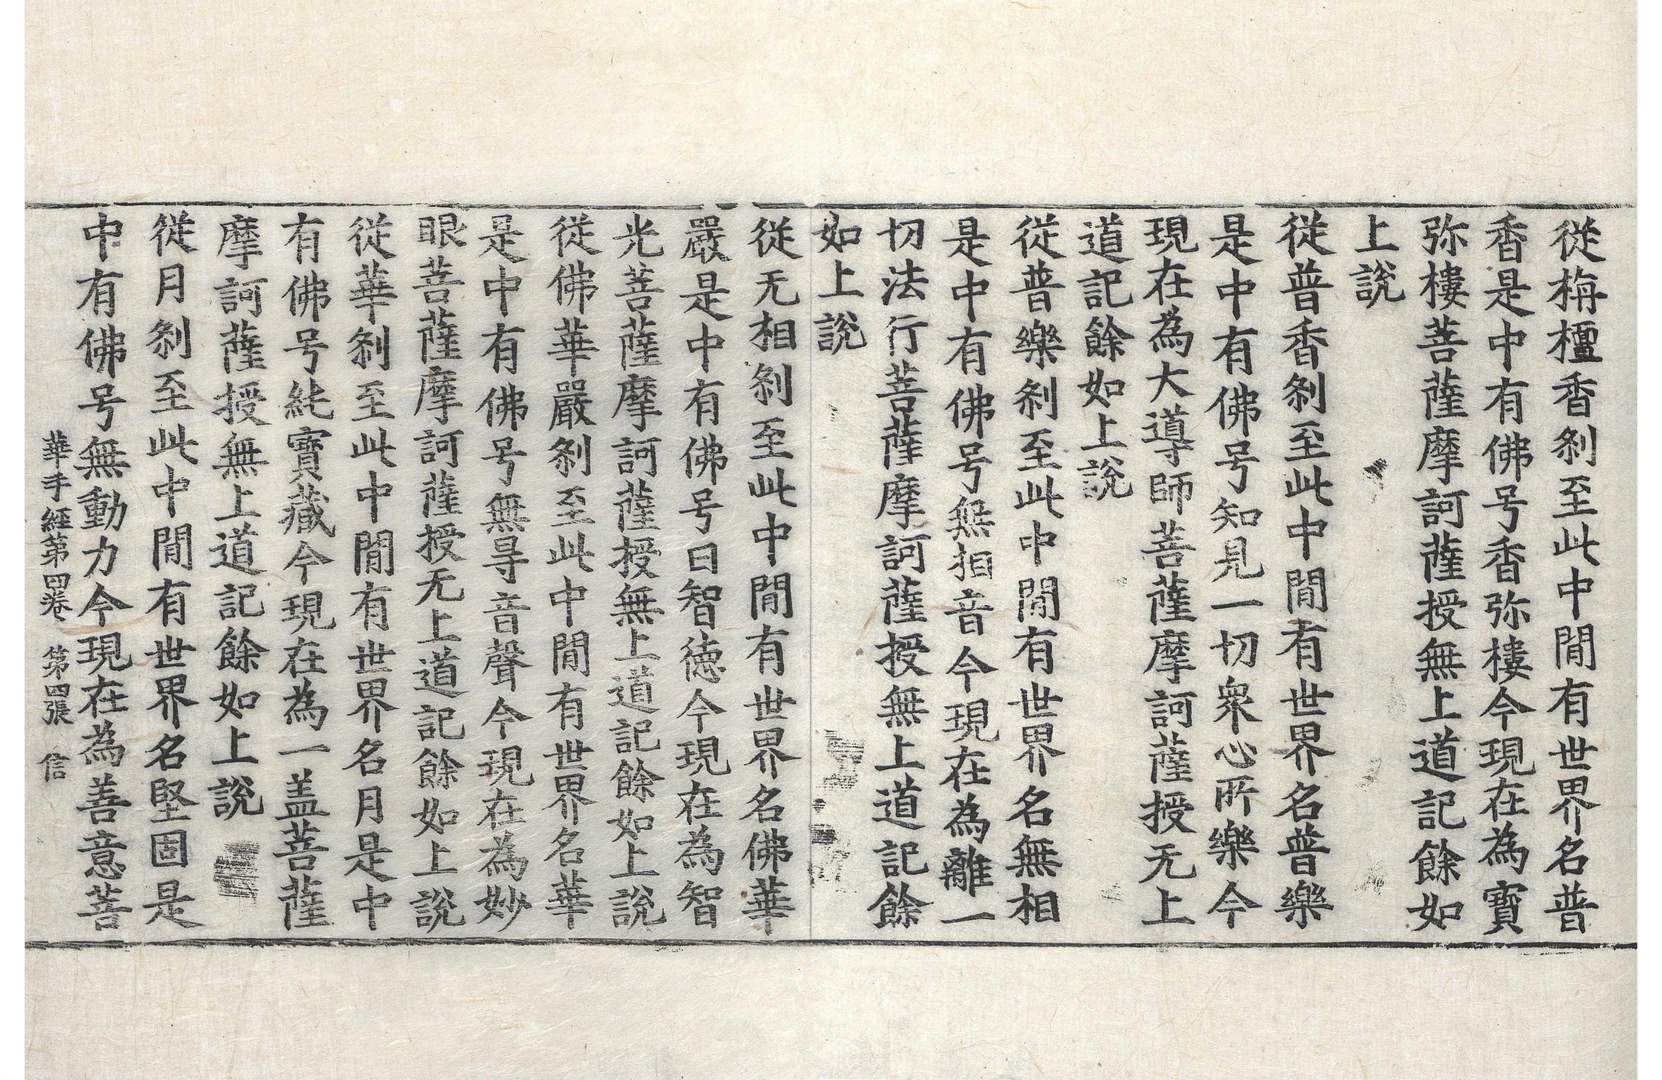 從栴檀香刹至此中閒有世界名普
香是中有佛号香弥樓今現在為寶
弥樓菩薩摩訶薩授無上道記餘如
上說
從普香刹至此中閒有世界名普樂
是中有佛号知見一切衆心所樂今
現在為大導師菩薩摩訶薩授无上
道記餘如上說
從普樂刹至此中閒有世界名無相
是中有佛号無相音今現在為離一
切法行菩薩摩訶薩授無上道記餘
如上說
從无相刹至此中閒有世界名佛華
嚴是中有佛号曰智德今現在為智
光菩薩摩訶薩授無上道記餘如上說
從佛華嚴刹至此中閒有世界名華
是中有佛号無㝵音聲今現在為妙
眼菩薩摩訶薩授无上道記餘如上說
從華刹至此中閒有世界名月是中
有佛号純寶藏今現在為一盖菩薩
摩訶薩授無上道記餘如上說
從月刹至此中閒有世界名堅固是
中有佛号無動力今現在為善意菩
華手經第四卷 第四張 信